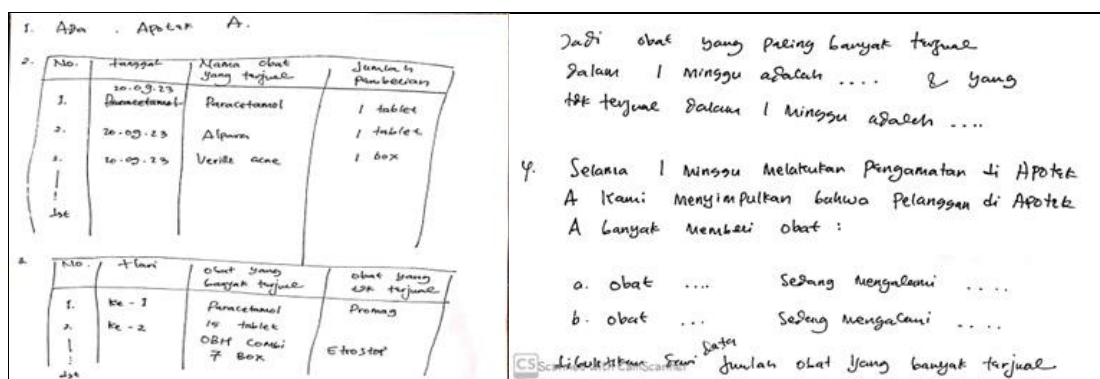 1. Ada . Apotek A.
2. No. tanggal Nama obat yang terjual Jumlah Pembelian
1. 20.09.23 Paracetamol 1 tablet
2. 20-09-23 1 tablet
3. 20-09-23 Verile acne 1 box
dst
3. No. Hari obat yang banyak terjual obat yang tdk terjual
1. Ke - 1 Paracetamol Promag
2. Ke - 2 15 tablet
OBH Combi
7 Box
dst
Jadi obat yang paling banyak terjual
dalam 1 minggu adalah .... & yang
tdk terjual dalam 1 minggu adalah ....
4. Selama 1 minggu melakukan Pengamatan di Apotek
A Kami menyimpulkan bahwa Pelanggan di Apotek
A banyak membeli obat :
a. obat .... Sedang mengalami ....
b. obat ... Sedang mengalami ....
dibuktikan dari data Jumlah obat yang banyak terjual